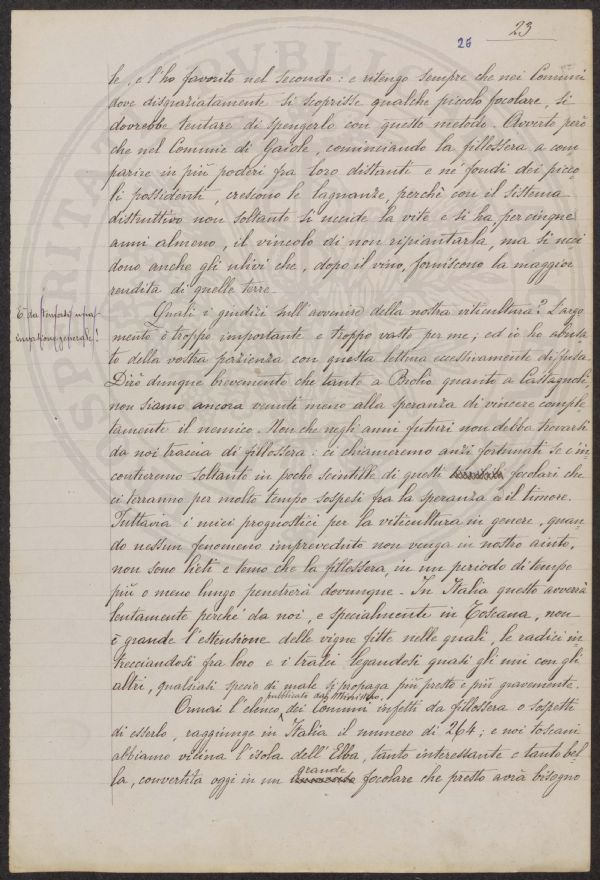 23
26
le, e l'ho favorito nel secondo: e ritengo sempre che nei Comuni
dove disgraziatamente si scoprisse qualche piccolo focolare, si
dovrebbe tentare di spengerlo con questo metodo. Avverto però
che nel Comune di Gaiole, cominciando la fillossera a com
parire in più poderi fra loro distanti e ne' fondi dei picco
li possidenti, crescono le lagnanze, perchè con il sistema
distruttivo non soltanto si uccide la vite e si ha per cinque
anni almeno, il vincolo di non ripiantarla, ma si ucci
dono anche gli ulivi che, dopo il vino, forniscono la maggior
rendita di quelle terre.
Quali i giudizi sull'avvenire della nostra viticultura? L'argo
mento è troppo importante e troppo vasto per me; ed io ho abusa
to della vostra pazienza con questa lettura eccessivamente diffusa.
Dirò dunque brevemente che tanto a Brolio quanto a Castagnoli,
non siamo ancora venuti meno alla speranza di vincere comple
tamente il nemico. Non che negli anni futuri non debba trovarsi
da noi traccia di fillossera: ci chiameremo anzi fortunati se c'in
contreremo soltanto in poche scintille di questi focolari che
ci terranno per molto tempo sospesi fra la speranza e il timore.
Tuttavia i miei prognostici per la viticultura in genere, quan
do nessun fenomeno impreveduto non venga in nostro aiuto,
non sono lieti e temo che la fillossera, in un periodo di tempo
più o meno lungo penetrerà dovunque. In Italia questo avverrà
lentamente perchè da noi, e specialmente in Toscana, non
è grande l'estensione delle vigne fitte nelle quali, le radici in
trecciandosi fra loro e i tralci legandosi quasi gli uni con gli
altri, qualsiasi specie di male si propaga più presto e più gravemente.
pubblicato dal Ministero,
Ormai l'elenco, dei Comuni infetti da fillossera o sospetti
di esserlo, raggiunge in Italia il numero di 264; e noi toscani
abbiamo vicina l'isola dell'Elba, tanto interessante e tanto bel
grande
la, convertita oggi in un focolare che presto avrà bisogno